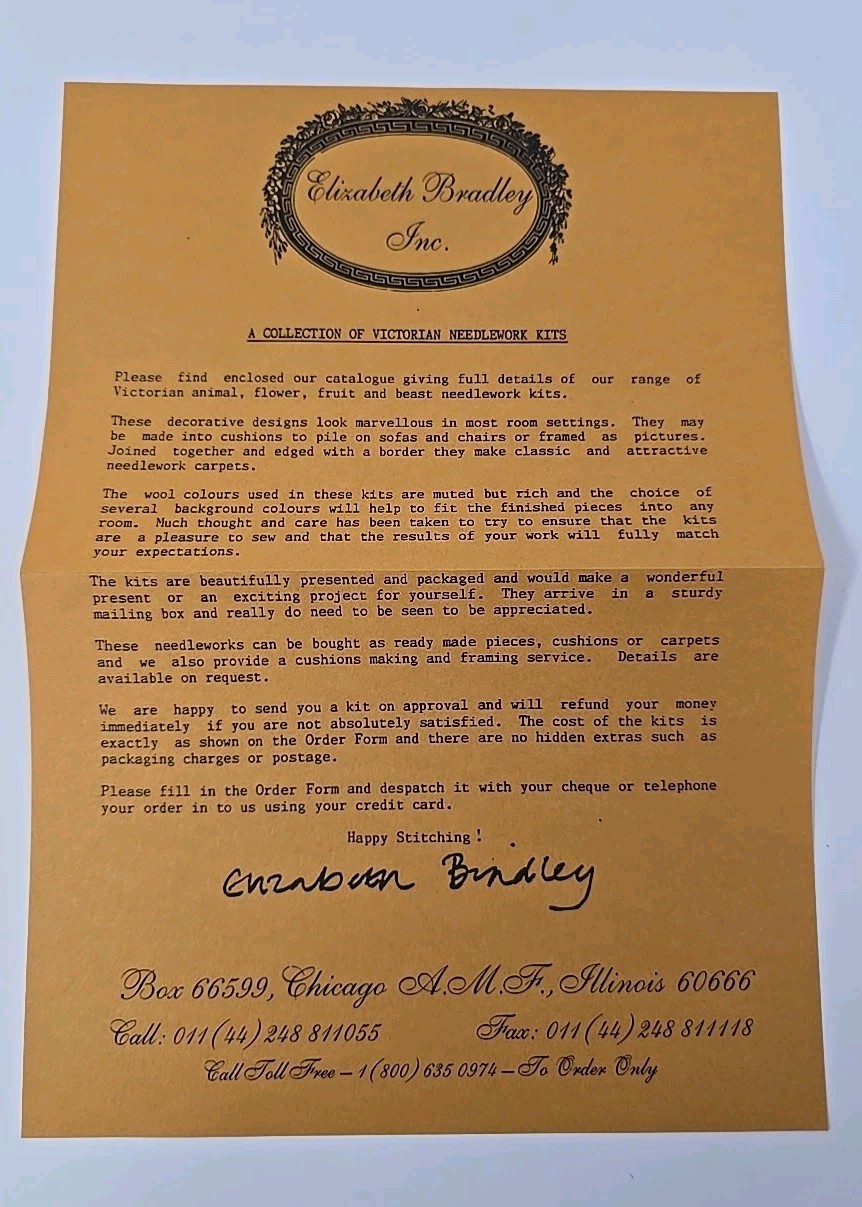 Elizabeth Bradley
Inc.
A COLLECTION OF VICTORIAN NEEDLEWORK KITS
Please find enclosed our catalogue giving full details of our range of
Victorian animal, flower, fruit and beast needlework kits.
These decorative designs look marvellous in most room settings. They may
be made into cushions to pile on sofas and chairs or framed as pictures.
Joined together and edged with a border they make classic and attractive
needlework carpets.
The wool colours used in these kits are muted but rich and the choice of
several background colours will help to fit the finished pieces into any
room. Much thought and care has been taken to try to ensure that the kits
are a pleasure to sew and that the results of your work will fully match
your expectations.
The kits are beautifully presented and packaged and would make a wonderful
present or an exciting project for yourself. They arrive in a sturdy
mailing box and really do need to be seen to be appreciated.
These needleworks can be bought as ready made pieces, cushions or carpets
and we also provide a cushions making and framing service. Details are
available on request.
We are happy to send you a kit on approval and will refund your money
immediately if you are not absolutely satisfied. The cost of the kits is
exactly as shown on the Order Form and there are no hidden extras such as
packaging charges or postage.
Please fill in the Order Form and despatch it with your cheque or telephone
your order in to us using your credit card.
Happy Stitching!
Elizabeth Bradley
Box 66599, Chicago A.M.F., Illinois 60666
Call: 011 (44) 248 811055 Fax: 011 (44) 248 811118
Call Toll Free – 1 (800) 635 0974 – To Order Only